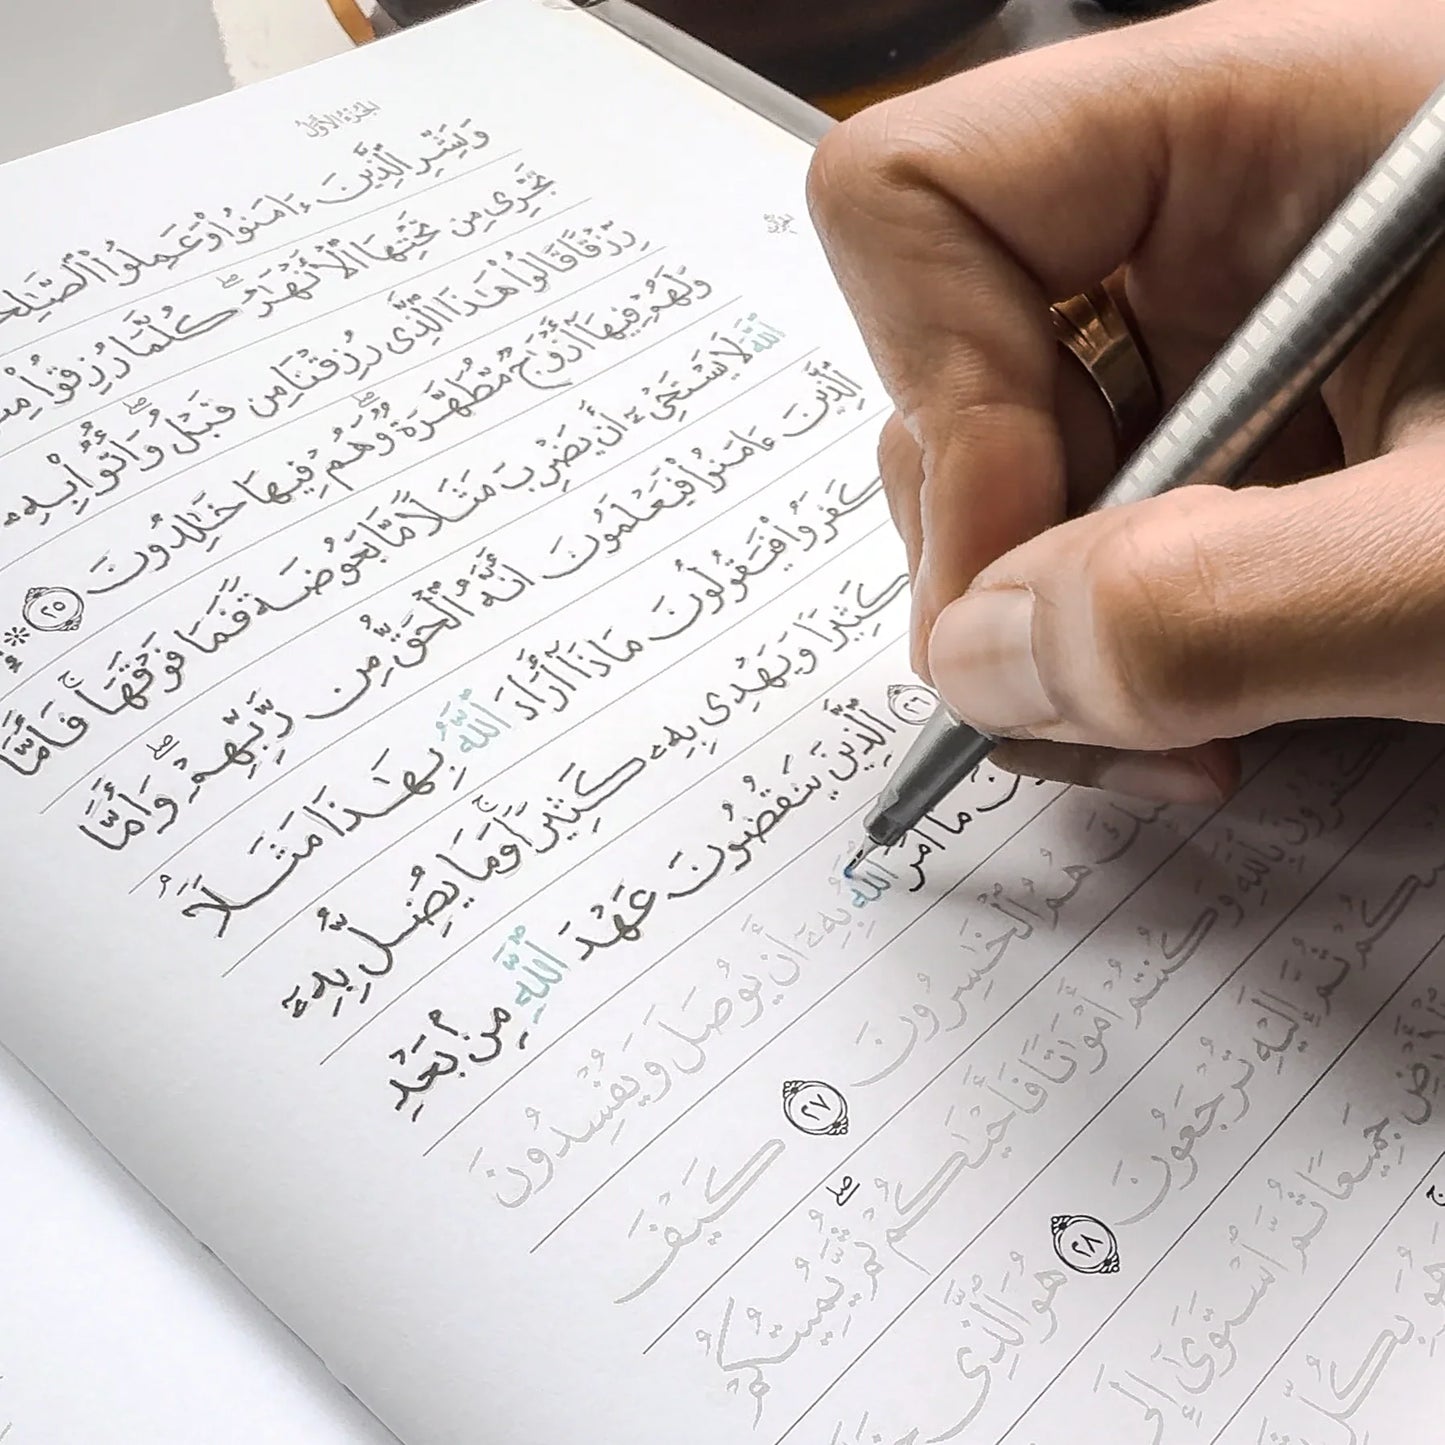 الجزء الأول
وَبَشِّرِ ٱلَّذِينَ ءَامَنُوا۟ وَعَمِلُوا۟
تَجْرِى مِن تَحْتِهَا ٱلْأَنْهَـٰرُ ۖ كُلَّمَا رُزِقُوا۟
رِّزْقًا قَالُوا۟ هَـٰذَا ٱلَّذِى رُزِقْنَا مِن قَبْلُ ۖ وَأُتُوا۟ بِهِۦ
وَلَهُمْ فِيهَآ أَزْوَٰجٌ مُّطَهَّرَةٌ ۖ وَهُمْ فِيهَا خَـٰلِدُونَ ٢٥ *
ٱللَّهَ لَا يَسْتَحْىِۦٓ أَن يَضْرِبَ مَثَلًا مَّا بَعُوضَةً فَمَا فَوْقَهَا ۚ فَأَمَّا
ٱلَّذِينَ ءَامَنُوا۟ فَيَعْلَمُونَ أَنَّهُ ٱلْحَقُّ مِن رَّبِّهِمْ ۖ وَأَمَّا
كَفَرُوا۟ فَيَقُولُونَ مَاذَآ أَرَادَ ٱللَّهُ بِهَـٰذَا مَثَلًا ۘ
كَثِيرًا وَيَهْدِى بِهِۦ كَثِيرًا ۚ وَمَا يُضِلُّ بِهِۦٓ
٢٦ ٱلَّذِينَ يَنقُضُونَ عَهْدَ ٱللَّهِ مِنۢ بَعْدِ
مَآ أَمَرَ ٱللَّهُ بِهِۦٓ أَن يُوصَلَ وَيُفْسِدُونَ
هُمُ ٱلْخَـٰسِرُونَ ٢٧ كَيْفَ
تَكْفُرُونَ بِٱللَّهِ وَكُنتُمْ أَمْوَٰتًا فَأَحْيَـٰكُمْ ۖ ثُمَّ يُمِيتُكُمْ
ثُمَّ إِلَيْهِ تُرْجَعُونَ ٢٨ هُوَ ٱلَّذِى
ٱلْأَرْضِ جَمِيعًا ثُمَّ ٱسْتَوَىٰٓ إِلَى
وَهُوَ بِكُلِّ